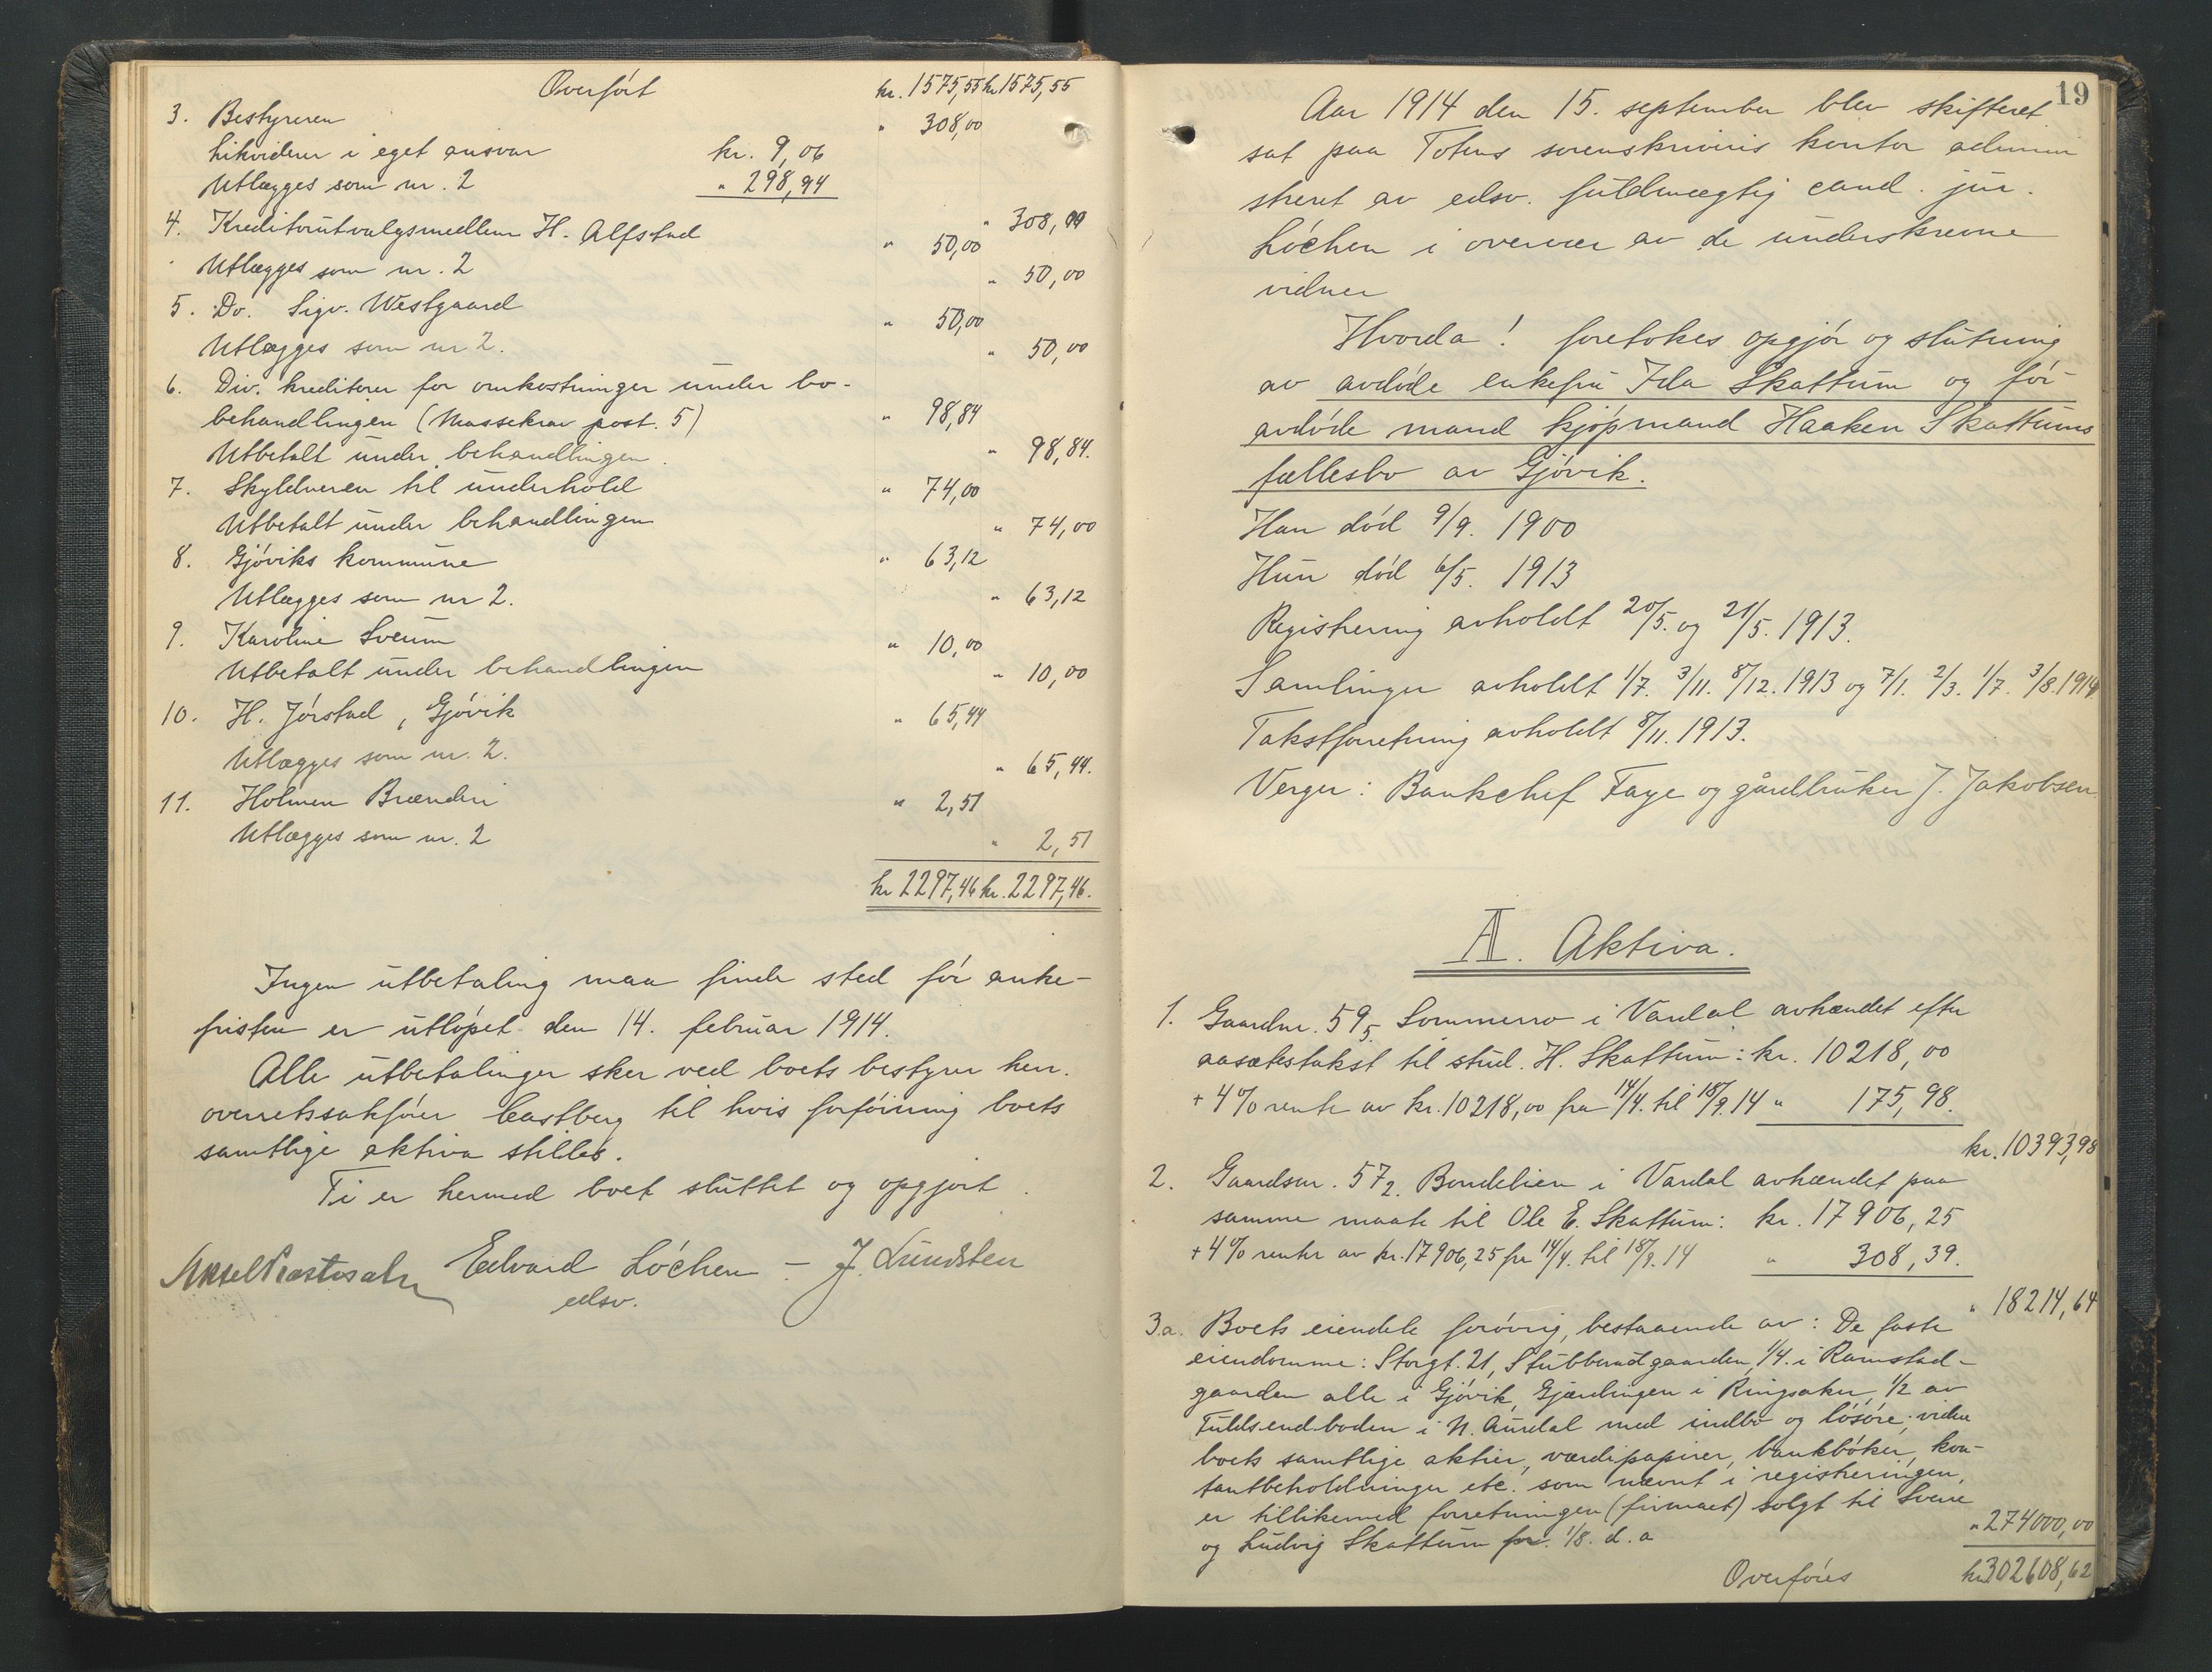 Overført kr. 1575,55 kr. 1575,55
3. Bestyreren " 308,00
Likviderer i eget ansvar kr. 9,06
Utlægges som nr. 2 " 298,94
" 308,00
4. Kreditorutvalgsmedlem H. Alfstad " 50,00
Utlægges som nr. 2 " 50,00
5. Do. Sigv. Westgaard " 50,00
Utlægges som nr 2. " 50,00
6. Div. kreditorer for omkostninger under bo-
behandlingen (Massekrav post. 5) " 98,84
Utbetalt under behandlingen. " 98,84.
7. Skyldneren til underhold " 74,00
Utbetalt under behandlingen " 74,00
8. Gjøviks kommune " 63,12
Utlægges som nr 2. " 63,12
9. Karoline Sveum " 10,00
Utbetalt under behandlingen " 10,00
10. H. Jørstad, Gjøvik " 65,44
Utlægges som nr. 2. " 65,44.
11. Holmen Brænderi " 2,51
Utlægges som nr. 2 " 2,51
kr 2297,46 kr. 2297,46.
Ingen utbetaling maa finde sted før anke-
fristen er utløpet den 14. februar 1914.
Alle utbetalinger sker ved boets bestyrer herr.
overretssakfører Castberg til hvis forføining boets
samtlige aktiva stilles.
Ti er hermed boet sluttet og opgjort.
Edvard Løchen – J. Lundsten
edsv.
19
Aar 1914 den 15. september blev skifteret
sat paa Totens sorenskriveris kontor admini
streret av edsv. fuldmægtig cand. jur.
Løchen i overvær av de underskrevne
vidner
Hvorda! foretokes opgjør og slutning
av avdøde enkefru Ida Skattum og før
avdøde mand kjøpmand Haaken Skattums
fællesbo av Gjøvik.
Han død 9/9. 1900
Hun død 6/5. 1913
Registrering avholdt 20/5. og 21/5. 1913.
Samlinger avholdt 1/7. 3/11. 8/12. 1913 og 7/1. 2/3. 1/7. 3/8. 1914
Takstforretning avholdt 8/11. 1913.
Verger: Bankchef Faye og gårdbruker J. Jakobsen.
A. Aktiva.
1. Gaardnr. 59 5 Sommerro i Vardal avhændet efter
aasætestakst til stud. H. Skattum: kr. 10218,00
+ 4% rente av kr. 10218,00 fra 14/4. til 18/9. 14 " 175,98.
kr. 10393,98
2. Gaardsnr. 57 2. Bondelien i Vardal avhændet paa
samme maate til Ole E. Skattum: kr. 17906,25
+ 4% renter av kr. 17906,25 fra 14/4. til 18/9. 14 " 308,39.
" 18214,64
3.a. Boets eiendele forøvrig, bestaaende av: De faste
eiendomme: Storgt. 21, Stubberudgaarden, 1/4. i Ramstad-
gaarden alle i Gjøvik, Gjærdingen i Ringsaker, 1/2 av
Fuldsendboden i N. Aurdal med indbo og løsøre; videre
boets samtlige aktier, værdipapirer, bankbøker, kon-
tantbeholdninger etc. som nævnt i registreringen,
er tillikemed forretningen (firmaet) solgt til Sverre
og Ludvig Skattum pr. 1/8. d. a " 274000,00
Overføres kr. 302608,62